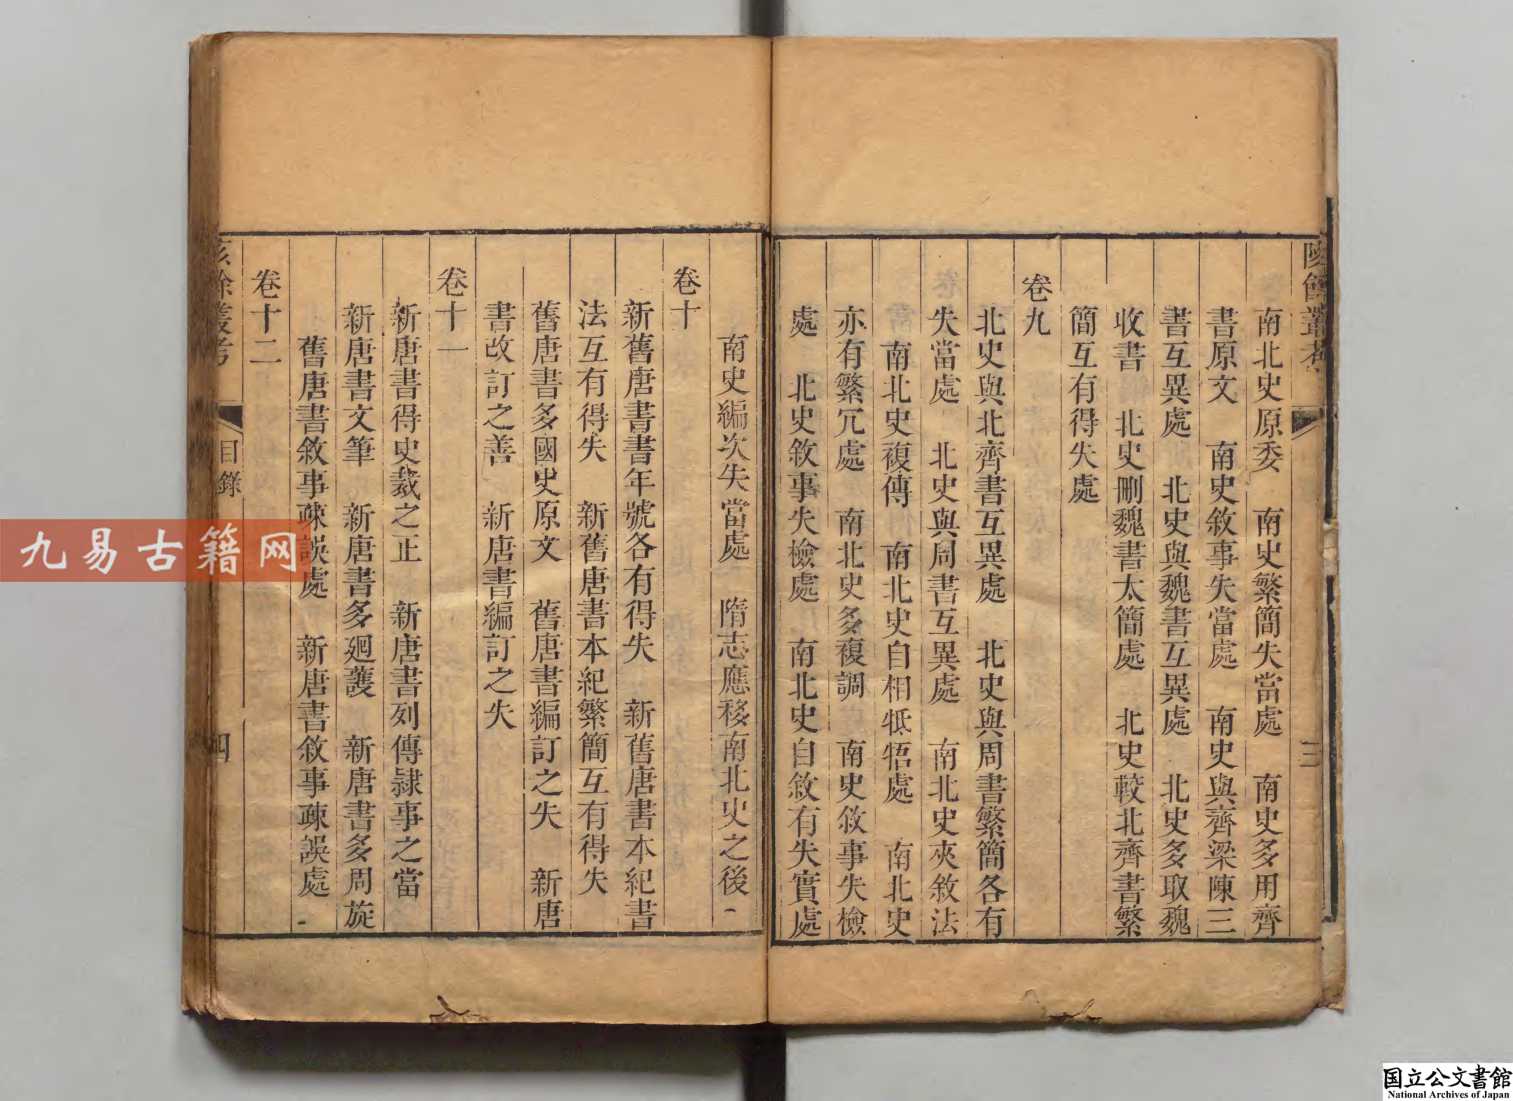 陔餘叢考
三
南北史原委　南史繁簡失當處　南史多用齊
書原文　南史敘事失當處　南史與齊梁陳三
書互異處　北史與魏書互異處　北史多取魏
收書　北史刪魏書太簡處　北史較北齊書繁
簡互有得失處
卷九
北史與北齊書互異處　北史與周書繁簡各有
失當處　北史與周書互異處　南北史夾敘法
南北史複傳　南北史自相牴牾處　南北史
亦有繁冗處　南北史多複調　南史敘事失檢
處　北史敘事失檢處　南北史自敘有失實處
南史編次失當處　隋志應移南北史之後
卷十
新舊唐書書年號各有得失　新舊唐書本紀書
法互有得失　新舊唐書本紀繁簡互有得失
舊唐書多國史原文　舊唐書編訂之失　新唐
書改訂之善　新唐書編訂之失
卷十一
新唐書得史裁之正　新唐書列傳隷事之當
新唐書文筆　新唐書多廻護　新唐書多周旋
舊唐書敘事疎誤處　新唐書敘事疎誤處
卷十二
陔餘叢考
目錄
四
九易古籍网
国立公文書館
National Archives of Japan